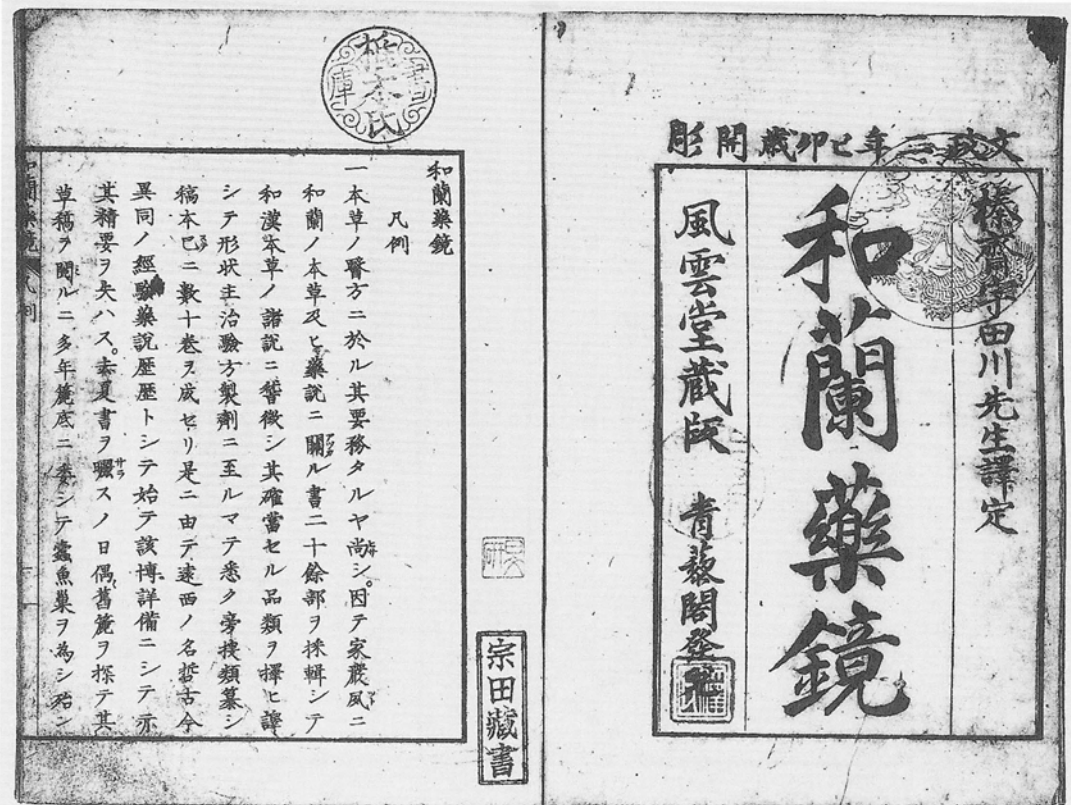 文政二年己卯歳開彫
榛齋宇田川先生譯定
和蘭藥鏡
風雲堂蔵版 青藜閣發兌
宗田藏書
和蘭藥鏡
凡例
一本草ノ醫方ニ於ル其要務タルヤ尚シ。因テ家嚴夙ニ
和蘭ノ本草及ヒ藥説ニ關ル書二十餘部ヲ採輯シテ
和漢本草ノ諸説ニ晉徴シ其確當セル品類ヲ擇ヒ譯
シテ形状主治驗方製劑ニ至ルマテ悉ク旁捜類纂シ
稿本已ニ數十巻ヲ成セリ是ニ由テ遠西ノ名哲古今
異同ノ經驗藥説歴歴トシテ始テ該博詳備ニシテ示
其精要ヲ失ハス。去夏書ヲ曬スノ日偶舊簏ヲ探テ其
草稿ヲ閲ルニ多年簏底ニ委シテ蠧魚巣ヲ為シ殆ン